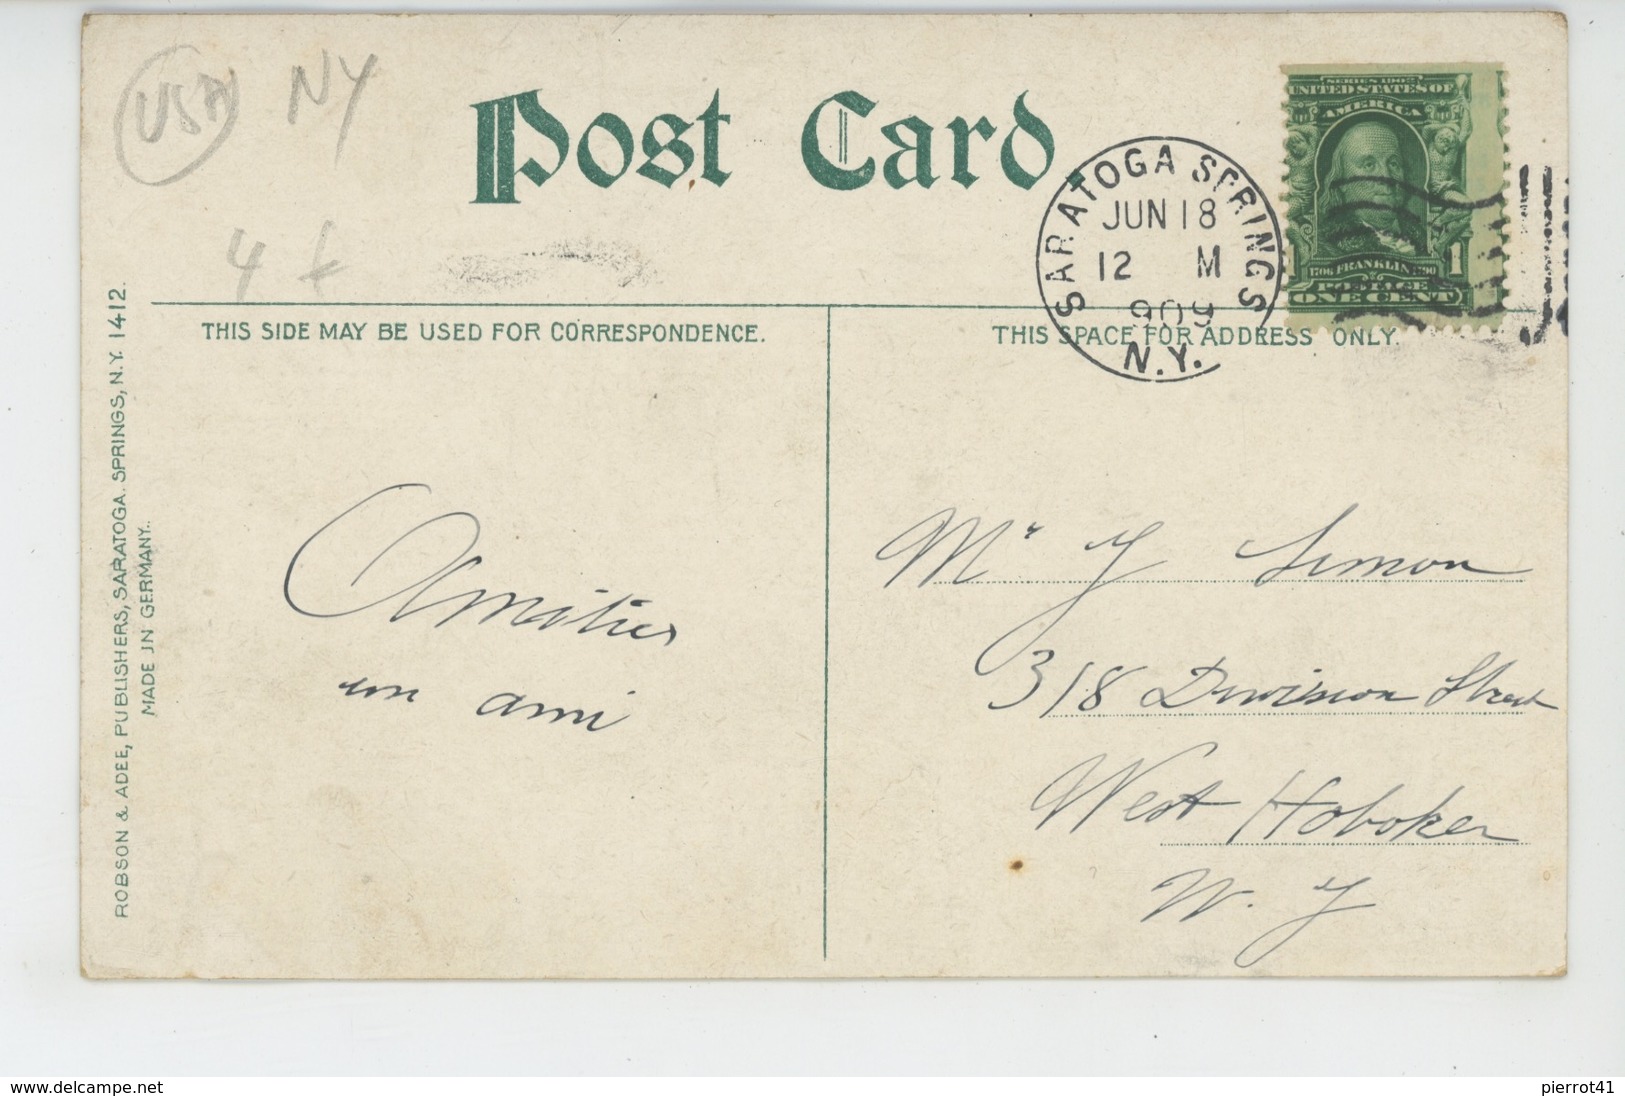 USA NY
4 f
Post Card
SARATOGA SPRINGS
JUN 18
12 M
1909
N.Y.
SERIES 1902
UNITED STATES OF
AMERICA
1706 FRANKLIN 1790
1
POSTAGE
ONE CENT
THIS SIDE MAY BE USED FOR CORRESPONDENCE.
THIS SPACE FOR ADDRESS ONLY.
ROBSON & ADEE, PUBLISHERS, SARATOGA SPRINGS, N.Y. 1412.
MADE IN GERMANY.
Amitiés
un ami
Mr J Simon
318 Division Street
West Hoboken
N. J
www.delcampe.net
pierrot41